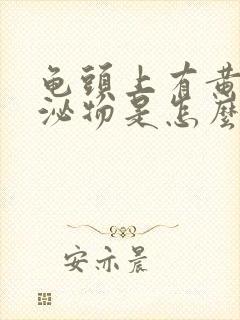 龟頭上有黄
泌物是怎麼
安亦晨